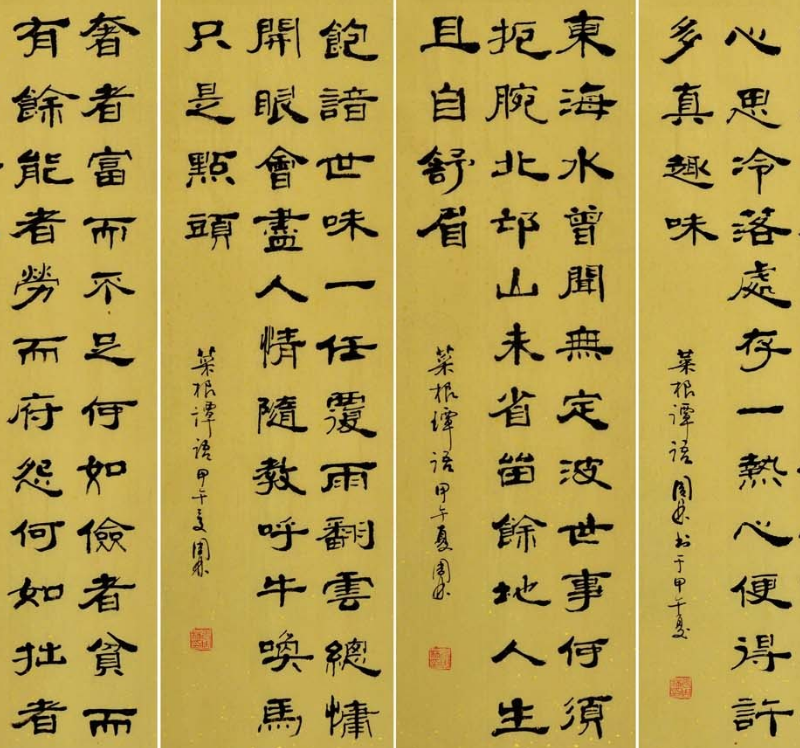 心思冷落處存一熱心便得許
多真趣味
菜根谭语 周书于甲午夏
東海水曾聞無定波世事何須
扼腕北邙山未省留餘地人生
且自舒眉
菜根谭语甲午夏周
飽諳世味一任覆雨翻雲總慵
開眼會盡人情隨教呼牛喚馬
只是點頭
菜根谭语甲午夏周
奢者富而不足何如儉者貧而
有餘能者勞而府怨何如拙者